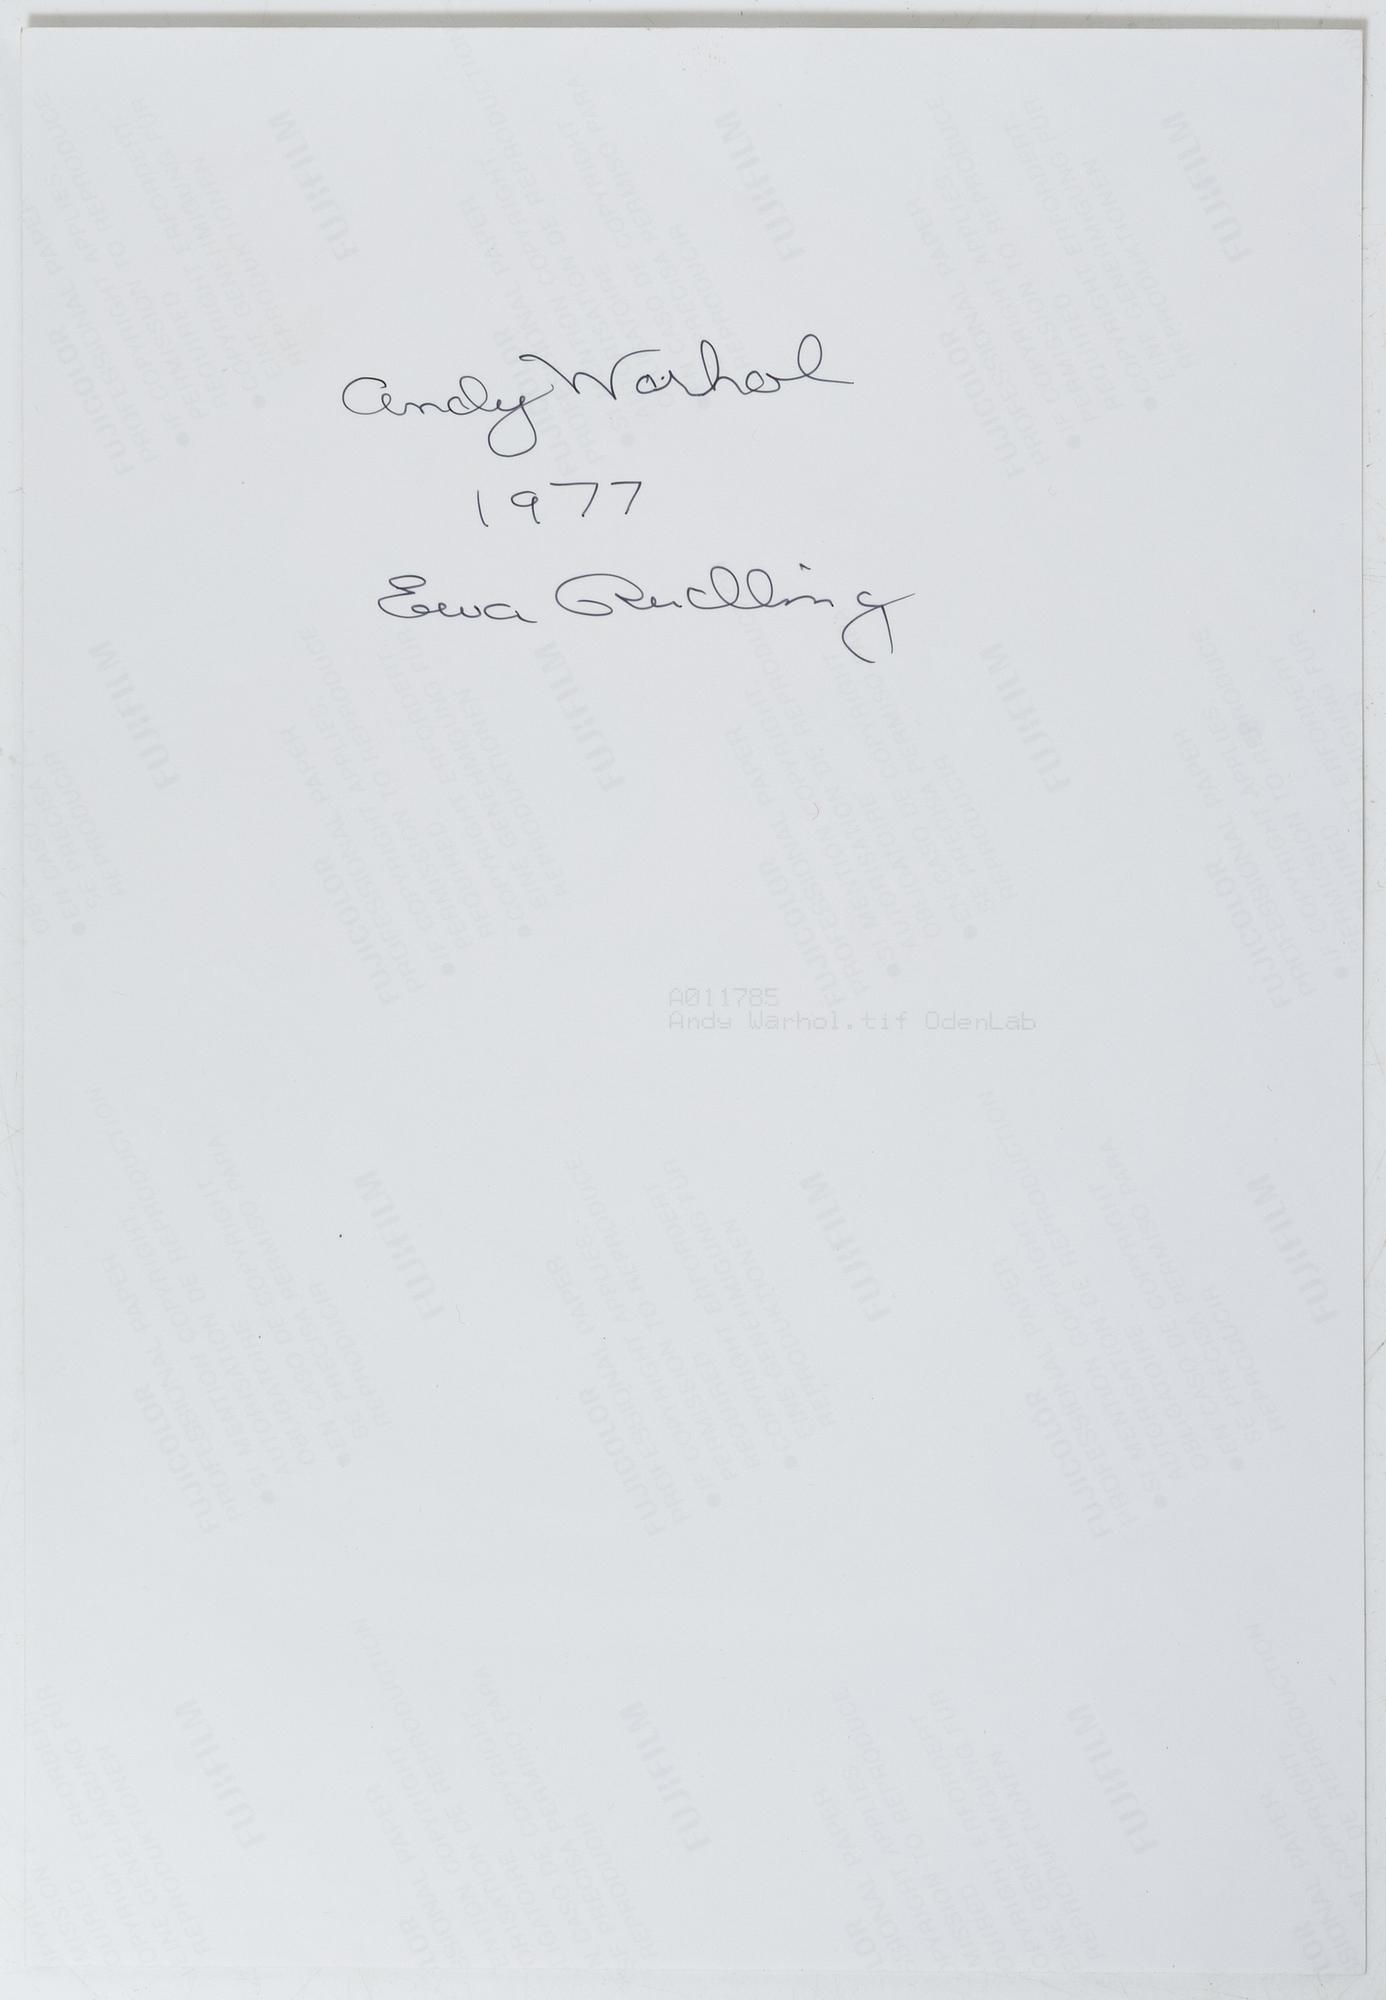 Andy Warhol
1977
Ewa Rudling
A011785
Andy Warhol.tif OdenLab
FUJIFILM
FUJICOLOR
PROFESSIONAL PAPER
• IF COPYRIGHT APPLIES,
PERMISSION TO REPRODUCE
REQUIRED
• COPYRIGHT ERFORDERT
EINE GENEHMIGUNG FÜR
REPRODUKTIONEN
FUJIFILM
FUJICOLOR
PROFESSIONAL PAPER
• SI MENTION COPYRIGHT,
AUTORISATION DE REPRODUCTION
OBLIGATOIRE
• EN CASO DE COPYRIGHT
SE PRECISA PERMISO PARA
REPRODUCIR